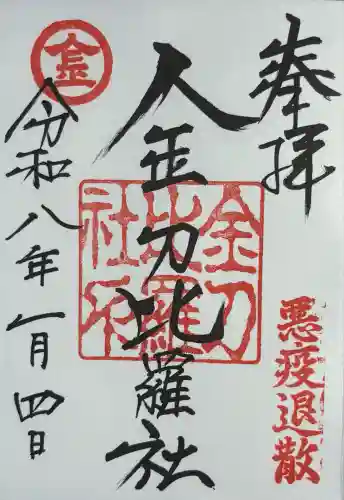 奉拝
悪疫退散
金刀比羅社
金刀
比羅
社印
金
令和八年一月四日